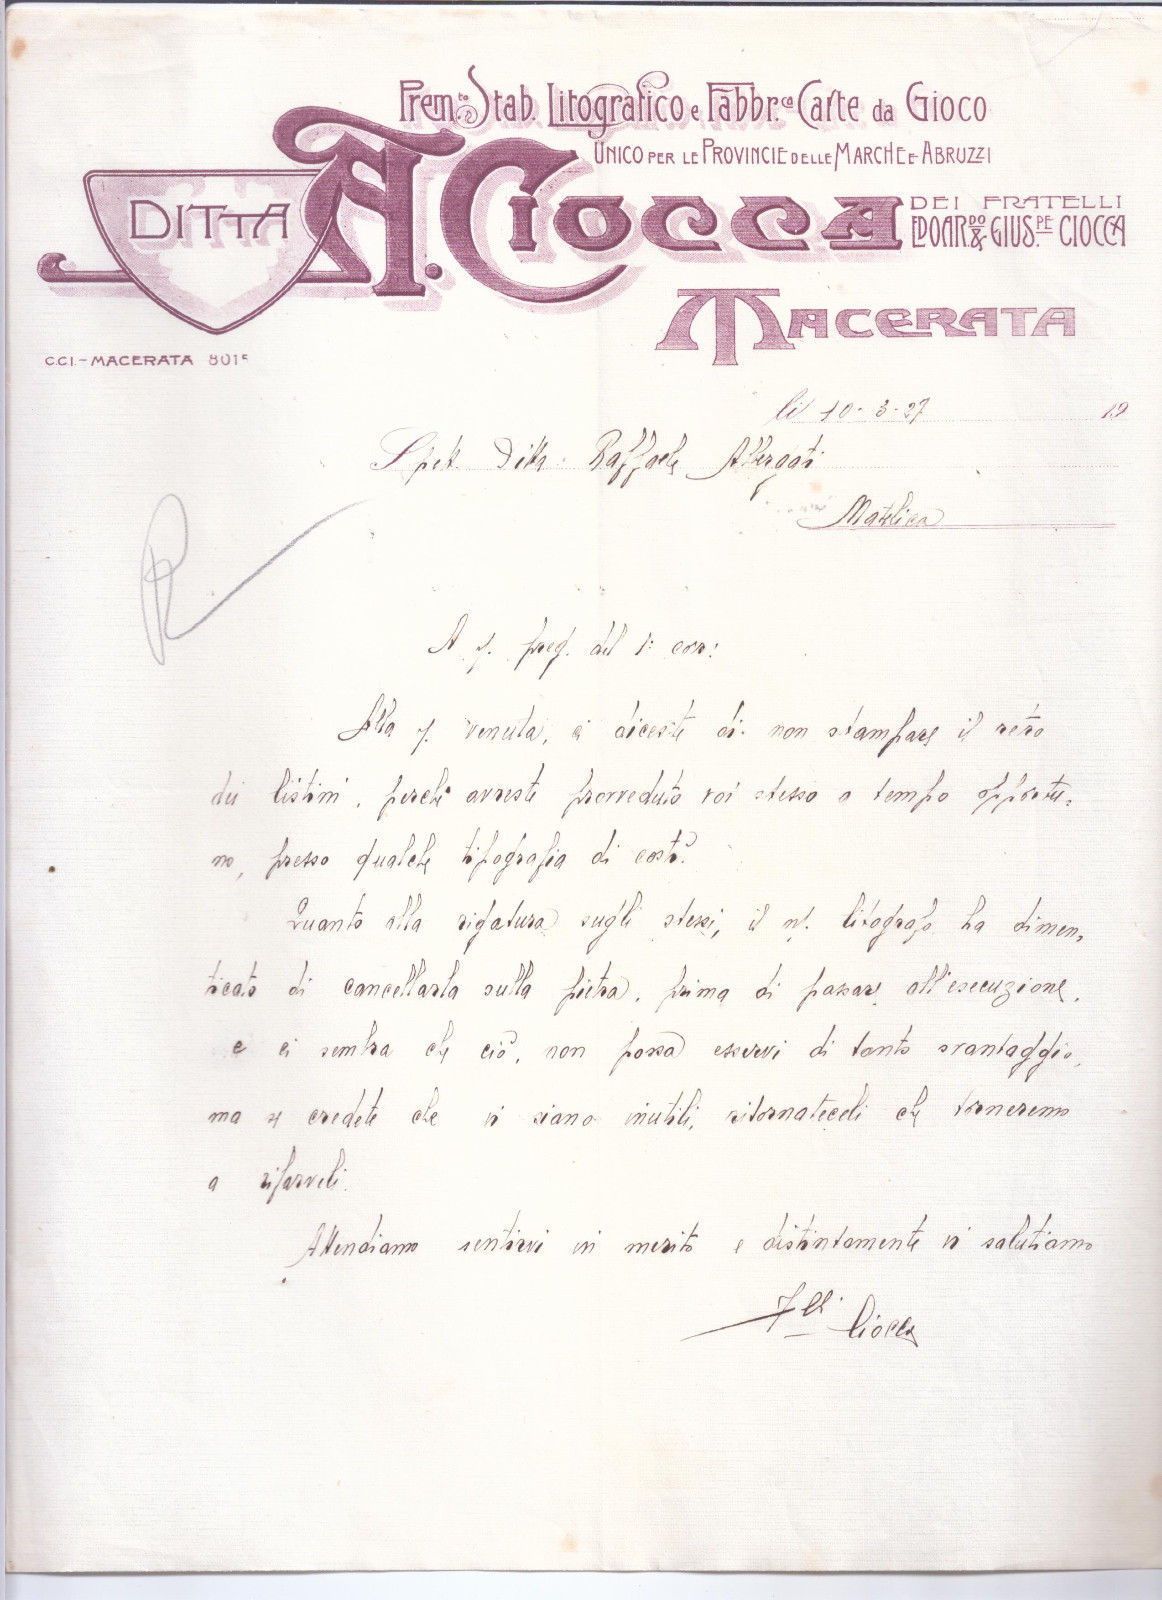 Prem.to Stab. Litografico e Fabbr.ca Carte da Gioco
Unico per le Provincie delle Marche e Abruzzi
DITTA A. CIOCCA DEI FRATELLI
EDOAR.DO & GIUS.PE CIOCCA
MACERATA
C.C.I. - MACERATA 8015
li 10-3-27 19
Spett. Ditta Raffaele Albergati
Matelica
A p. preg. del 1° corr:
Alla p. venuta, ci diceste di non stampare il retro
dei listini, perché avreste provveduto voi stesso a tempo opportu-
no, presso qualche tipografia di costì.
Quanto alla rigatura sugli stessi, il ns. litografo ha dimen-
ticato di cancellarla sulla pietra, prima di passare all'esecuzione,
e ci sembra che ciò, non possa esservi di tanto svantaggio,
ma se credete che vi siano inutili, ritornateceli che torneremo
a rifarveli.
Attendiamo sentirvi in merito e distintamente vi salutiamo
F.lli Ciocca